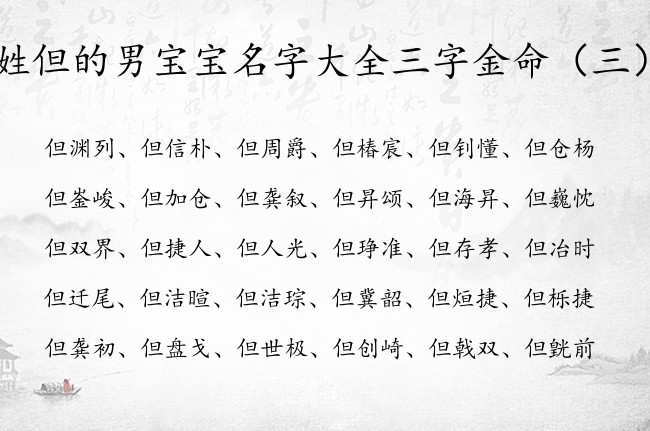 姓但的男宝宝名字大全三字金命（三）
但渊列、但信朴、但周爵、但椿宸、但钊懂、但仓杨
但崟峻、但加仓、但龚叙、但昇颂、但海昇、但巍忱
但双界、但捷人、但人光、但琤准、但存孝、但冶时
但迁尾、但洁暄、但洁琮、但冀韶、但烜捷、但栎捷
但龚初、但盘戈、但世极、但创崎、但戟双、但毲前